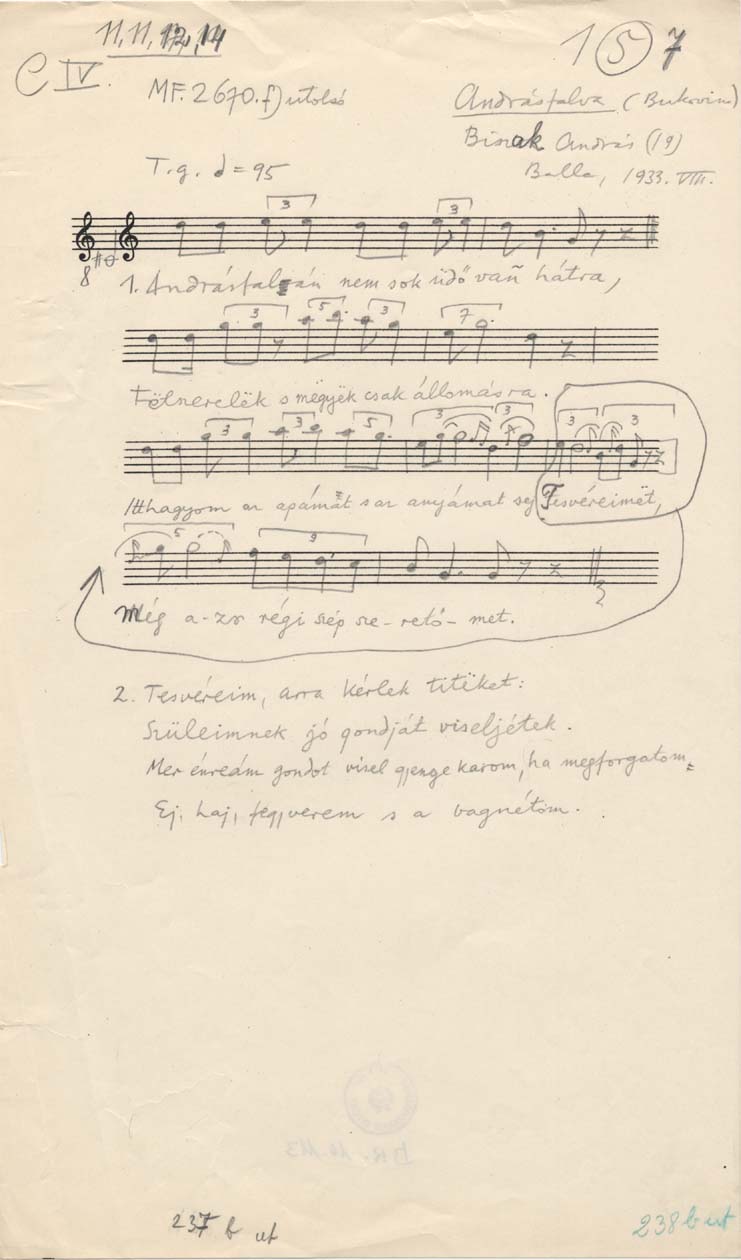 11, 11, 12, 14
1 5 7
C IV.
MF. 2670. f) utolsó
Andrásfalva (Bukovina)
András (19)
T.g. = 95
Balla, 1933. VIII.
3 3
8
1. Andrásfalván nem sok üdő van hátra,
3 5 3 7
Fölnerelëk s mëgyëk csak állomásra.
3 3 5 3 3 3 3
Itthagyom az apámät s az anyámat sej Tesvéreimët,
5 9
Még a-zs régi szép sze-rető-met.
2. Tesvéreim, arra kérlek titëket:
Szüleimnek jó gondját viseljétek.
Mer énreám gondot visel gyenge karom, ha megforgatom
Ej, haj, fegyverem s a bagnétom.
237 b ut
238 b ut